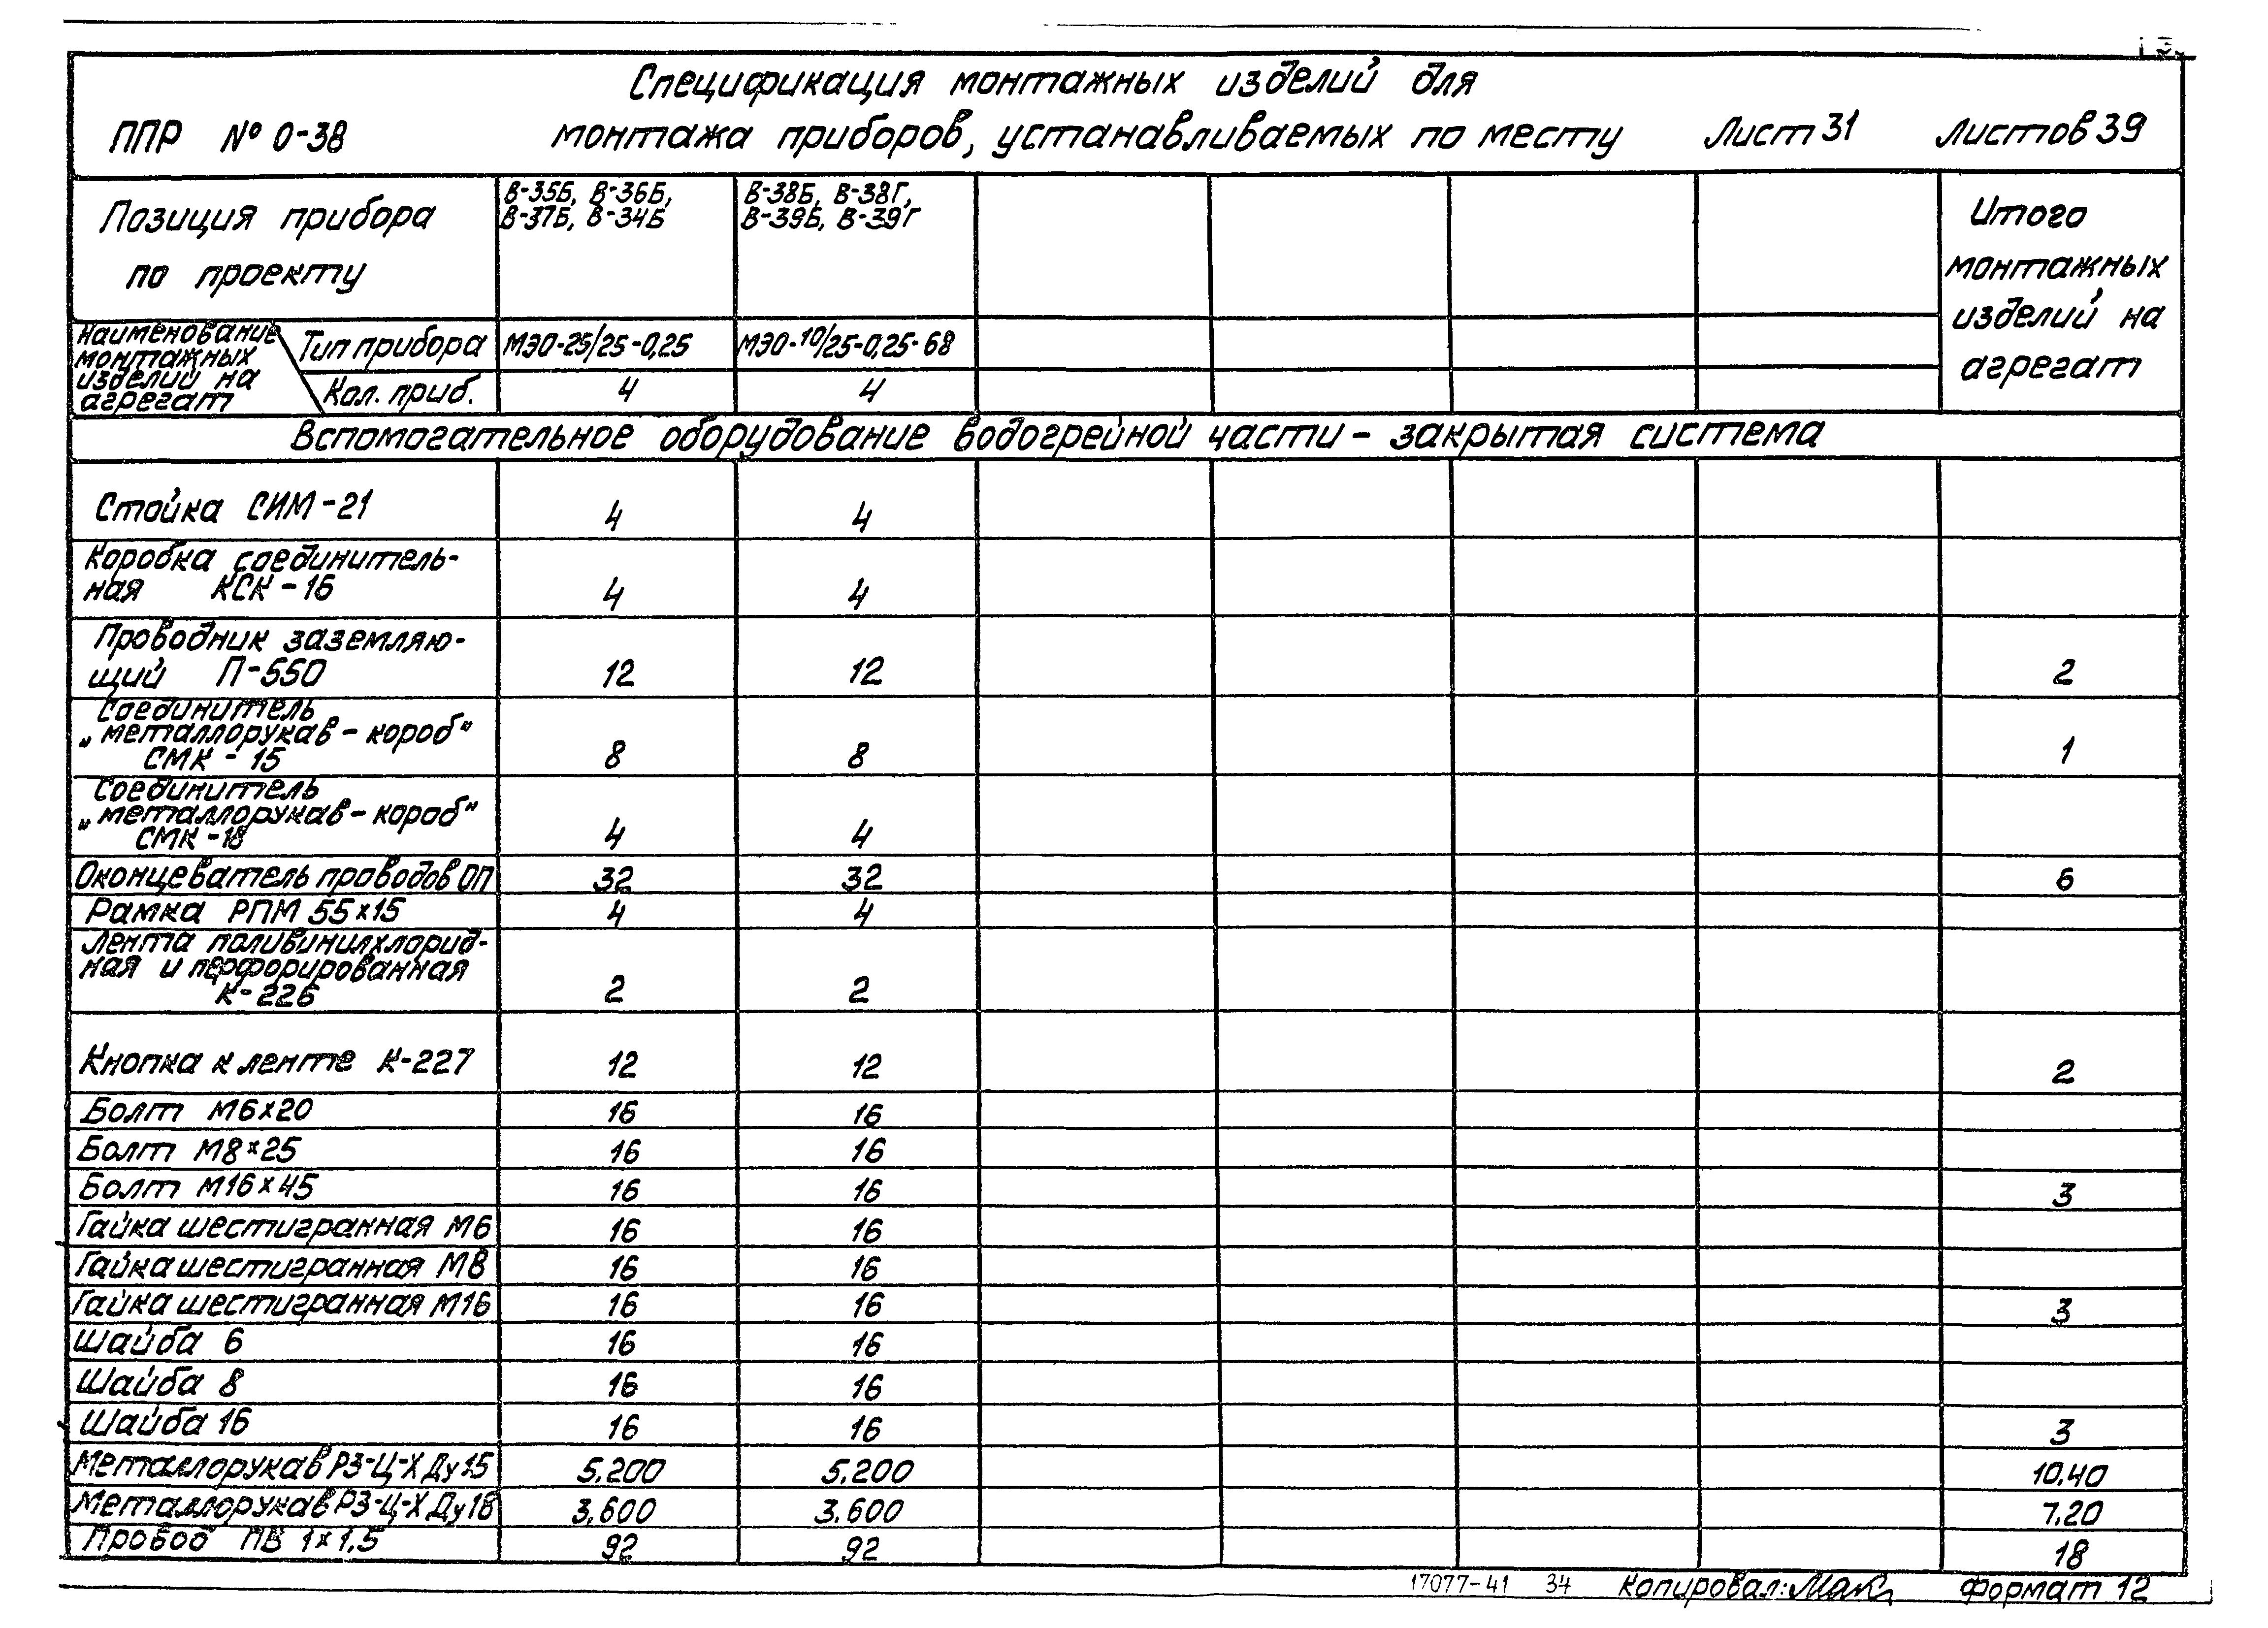 Спецификация монтажных изделий для
ППР № 0-38 монтажа приборов, устанавливаемых по месту Лист 31 Листов 39
Позиция прибора
по проекту
В-35Б, В-36Б,
В-37Б, В-34Б
В-38Б, В-38Г,
В-39Б, В-39Г
Итого
монтажных
изделий на
агрегат
Наименование
монтажных
изделий на
агрегат
Тип прибора МЭО-25/25-0,25 МЭО-10/25-0,25-68
Кол. приб. 4 4
Вспомогательное оборудование водогрейной части - закрытая система
Стойка СИМ-21 4 4
Коробка соединитель-
ная КСК-16 4 4
Проводник заземляю-
щий П-550 12 12 2
Соединитель
„металлорукав-короб"
СМК-15 8 8 1
Соединитель
„металлорукав-короб"
СМК-18 4 4
Оконцеватель проводов ОП 32 32 6
Рамка РПМ 55х15 4 4
Лента поливинилхлорид-
ная и перфорированная
К-226 2 2
Кнопка к ленте К-227 12 12 2
Болт М6х20 16 16
Болт М8х25 16 16
Болт М16х45 16 16 3
Гайка шестигранная М6 16 16
Гайка шестигранная М8 16 16
Гайка шестигранная М16 16 16 3
Шайба 6 16 16
Шайба 8 16 16
Шайба 16 16 16 3
Металлорукав РЗ-Ц-Х Ду15 5,200 5,200 10,40
Металлорукав РЗ-Ц-Х Ду18 3,600 3,600 7,20
Провод ПВ 1х1,5 92 92 18
17077-41 34 Копировал: Формат 12